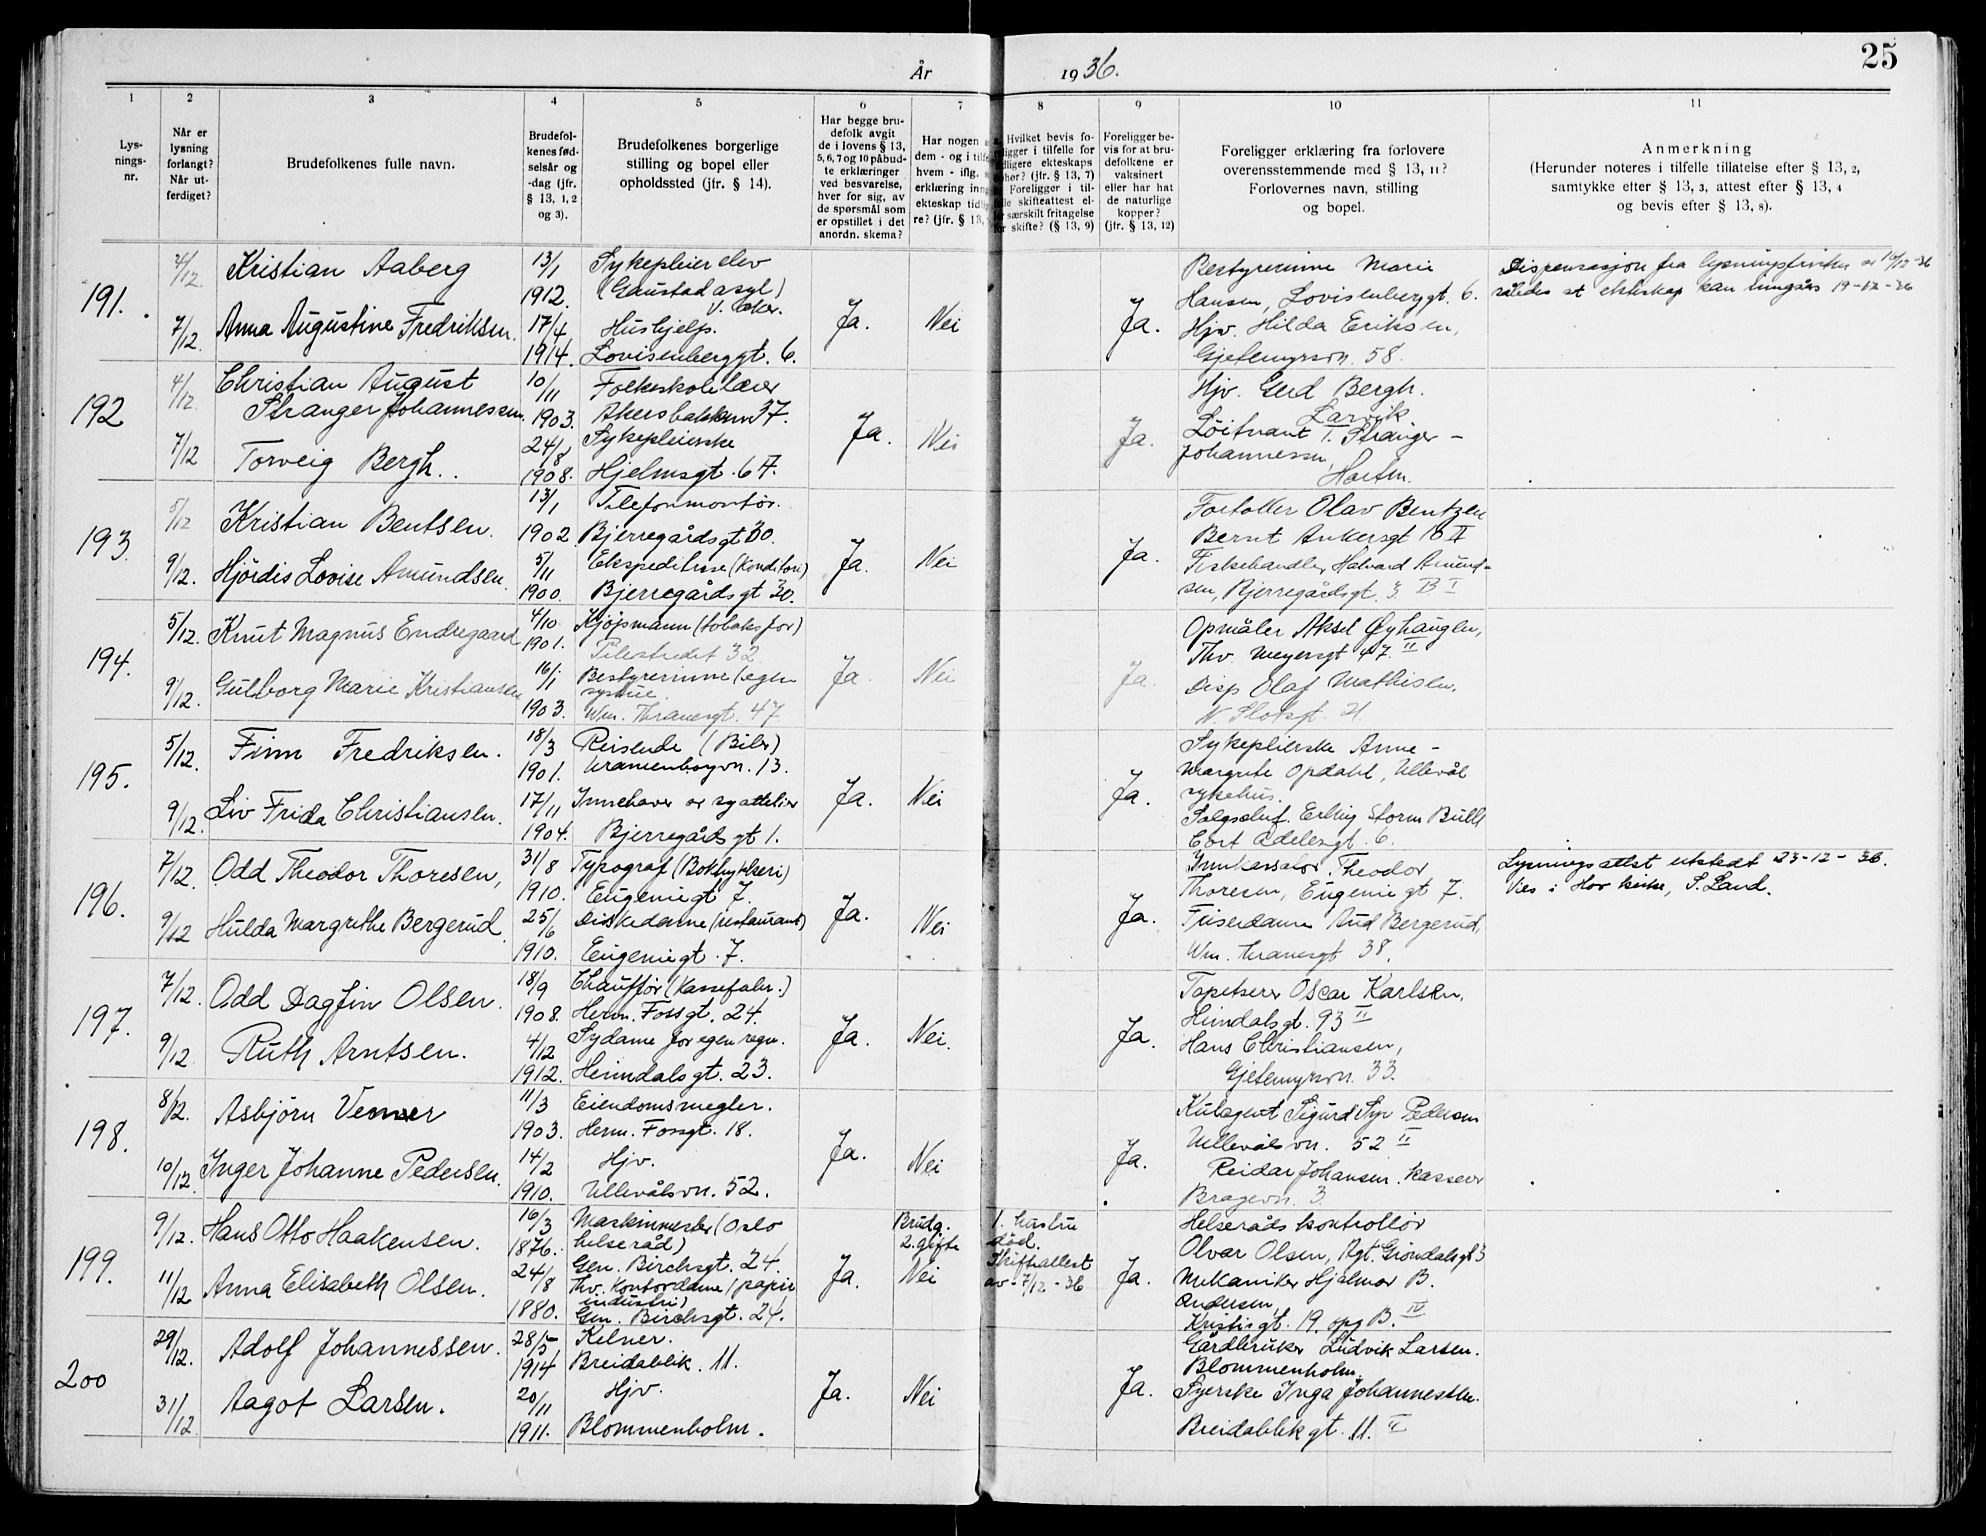 År 1936.
25
1 2 3 4 5 6 7 8 9 10 11
Lys-
nings-
nr.
Når er
lysning
forlangt?
Når ut-
ferdiget?
Brudefolkenes fulle navn.
Brudefol-
kenes fød-
selsår og
-dag (jfr.
§ 13, 1, 2
og 3).
Brudefolkenes borgerlige
stilling og bopel eller
opholdssted (jfr. § 14).
Har begge bru-
defolk avgit
de i lovens § 13,
5, 6, 7 og 10 påbud-
te erklæringer
ved besvarelse,
hver for sig, av
de spørsmål som
er opstillet i det
anordn. skema?
Har nogen
dem - og i tilf
hvem - iflg.
erklæring inng
ekteskap tidl
re? (jfr. § 13,
Hvilket bevis fo-
religger i tilfelle for
tidligere ekteskaps
ophør? (jfr. § 13, 7)
Foreligger i til-
felle skifteattest el-
ler særskilt fritagelse
for skifte? (§ 13, 9)
Foreligger be-
vis for at bru-
defolkene er
vaksinert
eller har hat
de naturlige
kopper?
(jfr. § 13, 12)
Foreligger erklæring fra forlovere
overensstemmende med § 13, 11?
Forlovernes navn, stilling
og bopel.
Anmerkning
(Herunder noteres i tilfelle tillatelse efter § 13, 2,
samtykke efter § 13, 3, attest efter § 13, 4
og bevis efter § 13, 8).
191.
4/12
7/12.
Kristian Aaberg
Anna Augustine Fredriksen.
13/1
1912.
17/4
1914.
Sykepleierelev
(Gaustad asyl)
V. Aker.
Hushjelp.
Lovisenberggt. 6.
Ja.
Nei
Ja.
Bestyrerinne Marie
Hansen, Lovisenberggt. 6.
Hjv. Hilda Eriksen,
Gjetemyrsvn. 58.
Dispensasjon fra lysningsfristen av 10/12-36
således at ekteskap kan inngåes 19-12-36
192
4/12.
7/12
Christian August
Stranger Johannessen.
Torveig Bergh.
10/11
1903.
24/8
1908.
Folkeskolelærer
Akersbakken 37.
Sykepleierske
Hjelmsgt. 6 A.
Ja.
Nei
Ja.
Hjv. Gerd Bergh.
Larvik
Løitnant T. Stranger-
Johannessen,
Horten.
193.
5/12
9/12.
Kristian Bentsen.
Hjördis Lovise Amundsen.
13/1
1902
5/11
1900.
Telefonmontör.
Bjerregårdsgt 30.
Ekspeditrise (Konditori)
Bjerregårdsgt 30.
Ja.
Nei
Ja.
Olav Bentzen
Bernt Ankersgt 10 II
Fiskehandler Halvard Amund-
sen, Bjerregårdsgt. 3 B I
194.
5/12.
9/12.
Knut Magnus Endregaard
Gulborg Marie Kristiansen
4/10
1901.
16/1
1903.
Kjöpmann (tobaksfor)
Pilestredet 32
Bestyrerinne (egen
systue.
Wm. Thranesgt. 47
Ja.
Nei
Ja.
Opmåler Aksel Øyhaugen,
Thv. Meyersgt 47. II
Disp Olaf Mathisen.
N. Slotsgt. 21.
195.
5/12.
9/12.
Finn Fredriksen.
Liv Frida Christiansen.
18/3
1901.
17/11
1904.
Reisende (Biler)
Uranienborgvn. 13.
Innehaver av syattelier
Bjerregårdsgt 1.
Ja.
Nei
Ja.
Sykepleierske Anne-
Margrete Opdahl, Ullevål
sykehus.
Salgschef. Erling Storm Bull
Cort Adelersgt. 6.
196.
7/12.
9/12
Odd Theodor Thoresen,
Hulda Margrethe Bergerud.
31/8
1910.
25/6
1910.
Typograf (Boktrykkeri)
Eugeniegt 7.
Diskedame (restaurant)
Eugeniegt. 7.
Ja.
Nei
Ja.
Innkassator. Theodor
Thoresen, Eugeniegt 7.
Friserdame Aud Bergerud,
Wm. Thranesgt 38.
Lysningsattest utstedt 23-12-36.
Vies i Hov kirke, S. Land.
197.
7/12.
9/12.
Odd Dagfin Olsen.
Ruth Arntsen.
18/9
1908.
4/12
1912.
Chauffør (Kassefabr.)
Herm. Fossgt. 24.
Sydame for egen regn.
Heimdalsgt. 23.
Ja.
Nei.
Ja.
Tapetserer Oscar Karlsen,
Heimdalsgt. 93 II
Hans Christiansen,
Gjetemyrsvn. 33.
198.
8/12.
10/12.
Asbjörn Venner
Inger Johanne Pedersen.
11/3
1903.
14/2
1910.
Eiendomsmegler.
Herm. Fossgt. 18.
Hjv.
Ullevålsvn. 52.
Ja.
Nei
Ja.
Kulagent Sigurd Syr Pedersen
Ullevålsvn. 52 II
Reidar Johansen. Kasserer
Bragevn. 3.
199.
9/12.
11/12
Hans Otto Haakensen.
Anna Elisabeth Olsen.
16/3
1876.
24/8
1880.
Maskinmester (Oslo
helseråd)
Gen. Birchsgt. 24.
Thv. Kontordame (papir
industri)
Gen. Birchsgt. 24.
Ja.
Brudg.
2. gifte
Nei
1. hustru
död.
Skifteattest
av - 7/12 - 36
Ja.
Helseråds kontrollör
Olvar Olsen, Agt. Gröndalsgt 3
Mekaniker Hjalmar B.
Andersen,
Kristisgt. 19. opg B. IV
200
29/12.
31/12
Adolf Johannessen.
Aagot Larsen.
28/5
1914
20/11
1911.
Kelner.
Breidablik 11.
Hjv.
Blommenholm.
Ja.
Nei
Ja.
Gårdbruker Ludvik Larsen.
Blommenholm.
Syerske Inga Johannessen.
Breidablikgt. 11. II